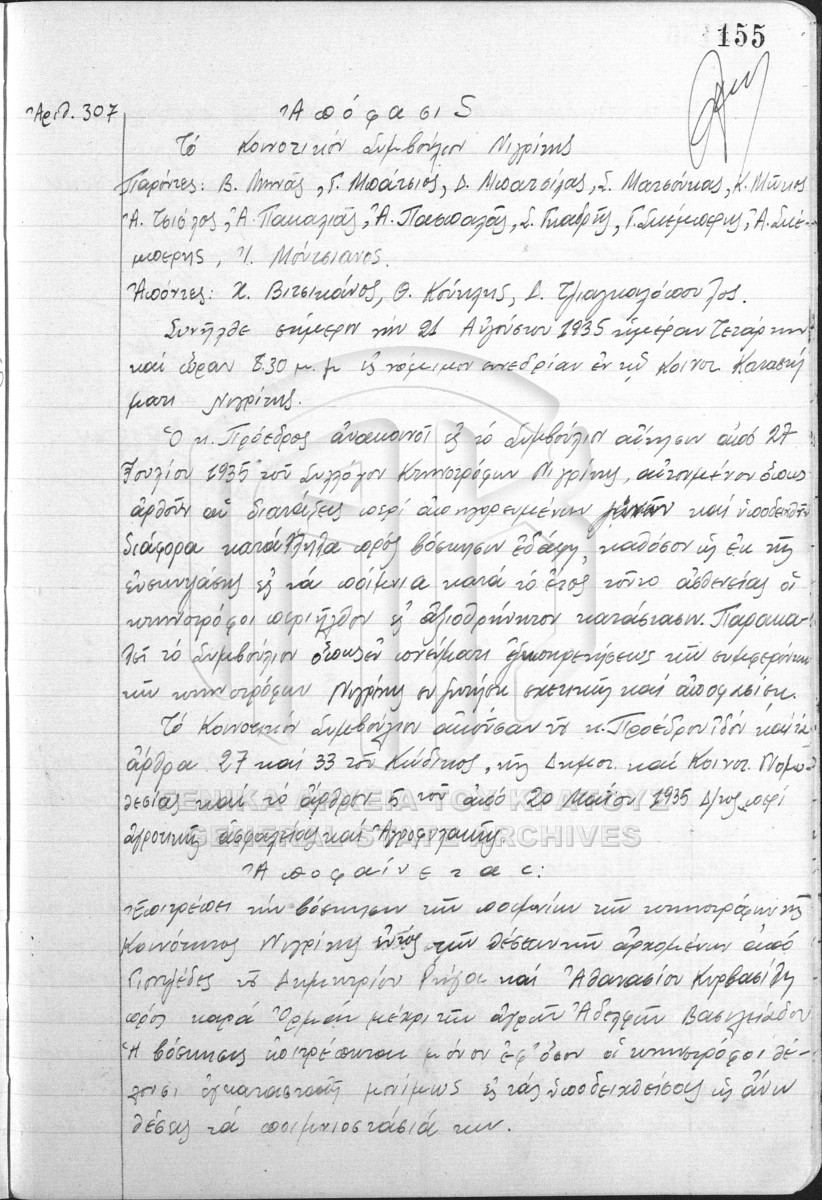 155
Ἀριθ. 307
Ἀπόφασις
Τό Κοινοτικόν Συμβούλιον Νιγρίτης
Παρόντες: Β. Μηνᾶς, Γ. Μπάτσιος, Δ. Μπατσίλας, Σ. Ματσούκας, Κ. Μῶκος
Ἀ. Τσιόλος, Ἀ. Πακαλιᾶς, Ἀ. Πασπαλᾶς, Σ. Γκαβρῆς, Γ. Σκέμπερης, Ἀ. Σκέ-
μπερης, Ἰ. Μόντσιανος.
Ἀπόντες: Χ. Βιτσικάνος, Θ. Κούκλης, Δ.
Συνῆλθε σήμερον τήν 21 Αὐγούστου 1935 ἡμέραν Τετάρτην
καί ὥραν 8.30 μ.μ εἰς νόμιμον συνεδρίαν ἐν τῷ Κοινοτ. Καταστή
ματι Νιγρίτης.
Ὁ κ. Πρόεδρος ἀνακοινοῖ εἰς τό Συμβούλιον αἴτησιν ἀπό 27
Ἰουλίου 1935 τοῦ Συλλόγου Κτηνοτρόφων Νιγρίτης, αἰτουμένου ὅπως
ἀρθοῦν αἱ διατάξεις περί ἀπηγορευμένων ζωνῶν καί ὑποδειχθοῦν
διάφορα κατάλληλα πρός βόσκησιν ἐδάφη, καθόσον ὡς ἐκ τῆς
ἐνσκηψάσης εἰς τά ποίμνια κατά τό ἔτος τοῦτο ἀσθενείας οἱ
κτηνοτρόφοι περιῆλθον εἰς ἀξιοθρήνητον κατάστασιν. Παρακα-
λεῖ τό Συμβούλιον ὅπως ἐν πνεύματι ἐξυπηρετήσεως τῶν συμφερόντων
τῶν κτηνοτρόφων Νιγρίτης συζητήσῃ σχετικῶς καί ἀποφασίσῃ.
Τό Κοινοτικόν Συμβούλιον ἀκοῦσαν τοῦ κ. Προέδρου ἰδόν καί τά
ἄρθρα 27 καί 33 τοῦ Κώδικος τῆς Δημοτ. καί Κοινοτ. Νομο-
θεσίας καί τό ἄρθρον 5 τοῦ ἀπό 20 Μαΐου 1935 Δ/τος περί
ἀγροτικῆς ἀσφαλείας καί Ἀγροφυλακῆς.
Ἀποφαίνεται:
Ἐπιτρέπει τήν βόσκησιν τῶν ποιμνίων τῶν κτηνοτρόφων τῆς
Κοινότητος Νιγρίτης ἐντός τῶν θέσεων τῶν ἀρχομένων ἀπό
τοῦ Δημητρίου καί Ἀθανασίου Κυρβασίλη
πρός καρά Ὀρμάν μέχρι τῶν ἀγρῶν Ἀδελφῶν Βασιλειάδου
Ἡ βόσκησις ἐπιτρέπεται μόνον ἐφ' ὅσον οἱ κτηνοτρόφοι θέ-
λουσι ἐγκαταστήσῃ μονίμως εἰς τάς ὑποδειχθείσας ὡς ἄνω
θέσεις τά ποιμνιοστάσιά των.
ΓΕΝΙΚΑ ΑΡΧΕΙΑ ΤΟΥ ΚΡΑΤΟΥΣ
GENERAL STATE ARCHIVES